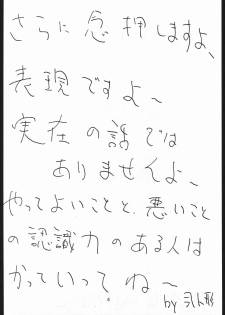 さらに念押しますよ、
表現ですよ～
実在の話では
ありませんよ、
やってよいことと、悪いこと
の認識力のある人は
かっていって、ね～
by 引人形